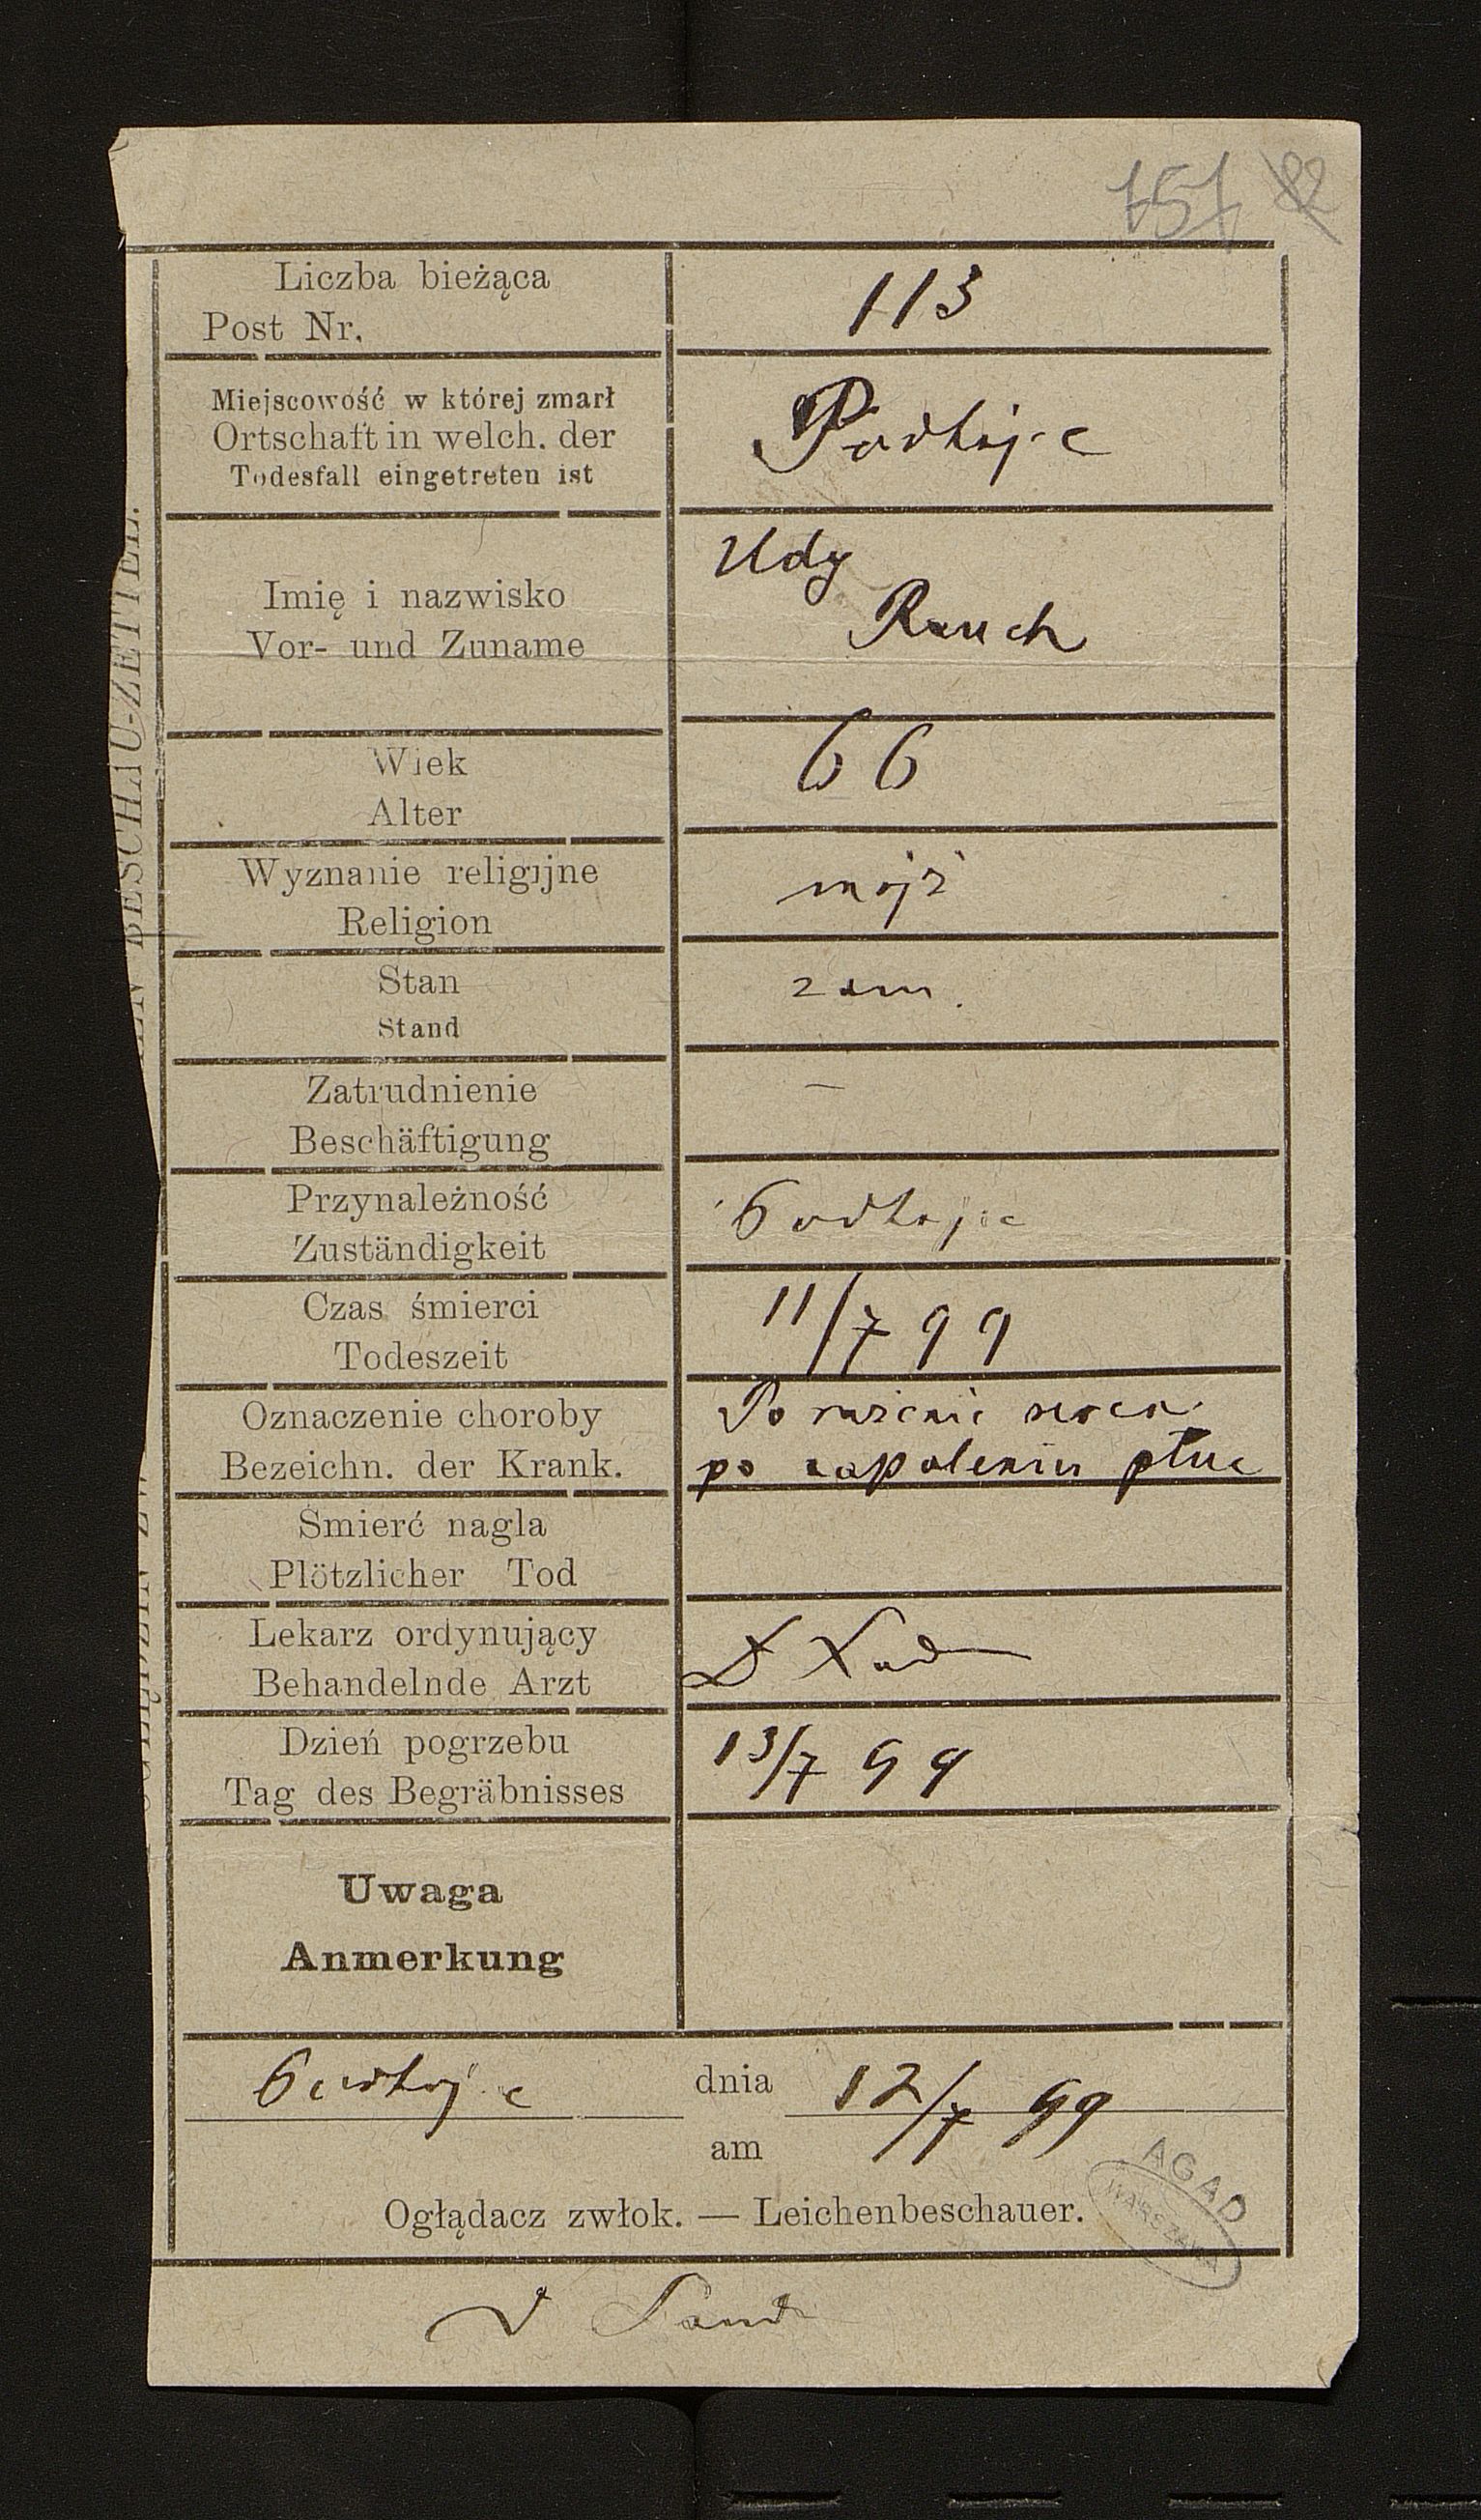 757 82
Liczba bieżąca
Post Nr.
113
Miejscowość w której zmarł
Ortschaft in welch. der
Todesfall eingetreten ist
Podhajce
Imię i nazwisko
Vor- und Zuname
Udy
Rauch
Wiek
Alter
66
Wyznanie religijne
Religion
mojż
Stan
Stand
zam.
Zatrudnienie
Beschäftigung
—
Przynależność
Zuständigkeit
Podhajce
Czas śmierci
Todeszeit
11/7 99
Oznaczenie choroby
Bezeichn. der Krank.
Porażenie serca
po zapaleniu płuc
Śmierć nagla
Plötzlicher Tod
Lekarz ordynujący
Behandelnde Arzt
Dzień pogrzebu
Tag des Begräbnisses
13/7 99
Uwaga
Anmerkung
Podhajce dnia 12/7 99
am
Oglądacz zwłok. — Leichenbeschauer.
AGAD
WARSZAWA
BESCHAU-ZETTEL.